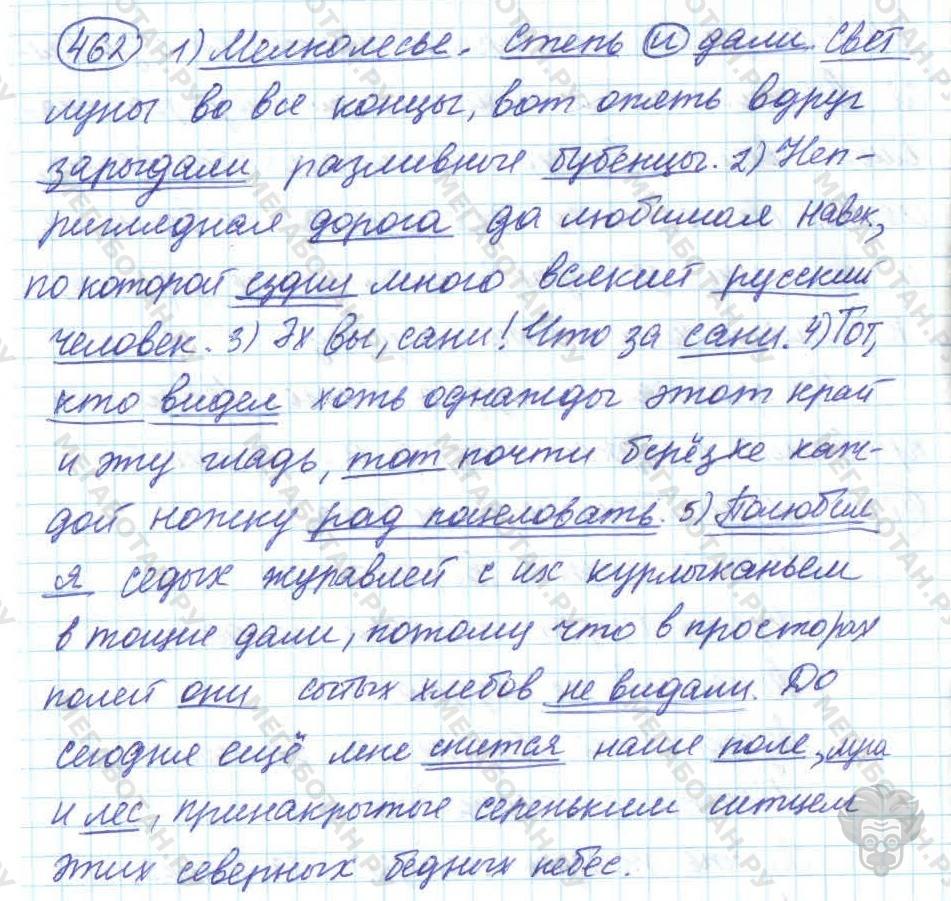 462 1) Мелколесье. Степь и дали. Свет
луны во все концы, вот опять вдруг
зарыдали разливные бубенцы. 2) Неп-
риглядная дорога да любимая навек,
по которой ездил много всякий русский
человек. 3) Эх вы, сани! Что за сани. 4) Тот,
кто видел хоть однажды этот край
и эту гладь, тот почти берёзке каж-
дой ножку рад поцеловать. 5) Полюбил
я седых журавлей с их курлыканьем
в тощие дали, потому что в просторах
полей они сытых хлебов не видали. До
сегодня ещё мне снится наше поле, луга
и лес, принакрытые сереньким ситцем
этих северных бедных небес.
МЕГАБОТАН.РУ